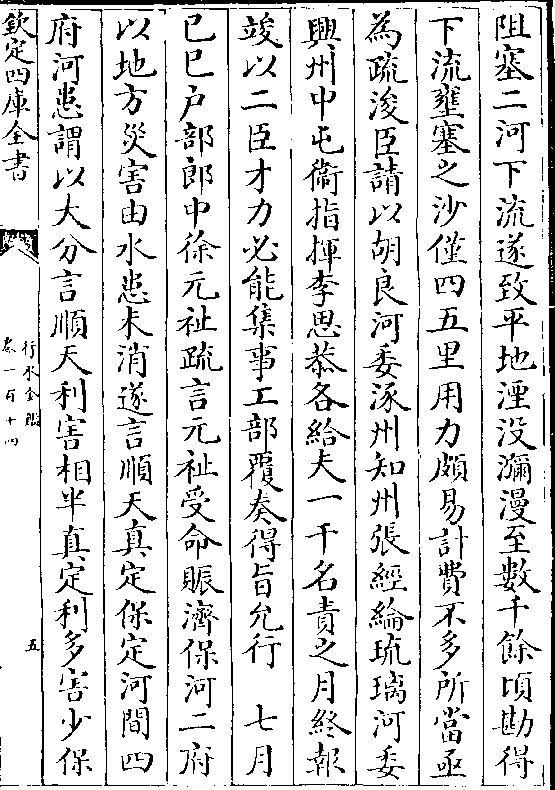 阻塞二河下流遂致平地湮没瀰漫至數千餘頃勘得
下流壅塞之沙僅四五里用力頗易計費不多所當亟
為疏浚臣請以胡良河委涿州知州張經綸琉璃河委
興州中屯衛指揮李思恭各給夫一千名責之月終報
竣以二臣才力必能集事工部覆奏得旨允行　七月
已巳户部郎中徐元祉疏言元祉受命賑濟保河二府
以地方災害由水患未消遂言順天真定保定河間四
府河患謂以大分言順天利害相半真定利多害少保
欽定四庫全書
行水金鑑
卷一百十四
五